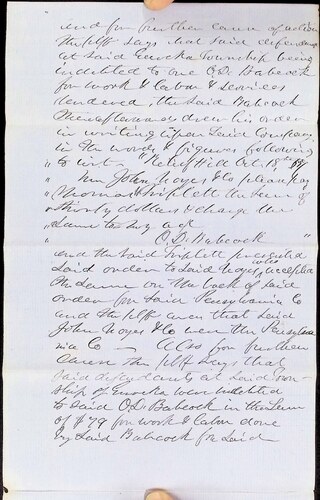 and for further cause of action
the plff says that said defendants
at said Eureka Township being
indebted to one O.D. Babcock
for work & labor & services
rendered, the said Babcock
thereafterwards drew his order
in writing upon said Company
in the words & figures following
" to wit - " Oct. 18th
" John Noyes & Co please pay
" Thomas Triplett the sum of
" thirty dollars & charge the
" same to my act
" O.D. Babcock "
and the said Triplett presented
said order to said Noyes, accepted
the same on the back of said
order for said Pensylvania Co
and the plff avers that said
John Noyes & Co were the Pensylva
nia Co - Also for further
cause the plff says that
said defendants at said Town-
ship of Eureka were indebted
to said O.D. Babcock in the sum
of $79 for work & labor done
by said Babcock for said